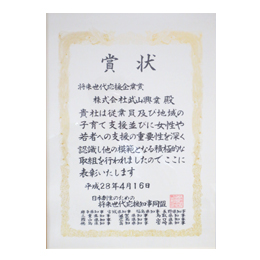 賞状
将来世代応援企業賞
株式会社武山興業 殿
貴社は従業員及び地域の
子育て支援並びに女性や
若者への支援の重要性を深く
認識し他の模範となる積極的な
取組を行われましたのでここに
表彰いたします
平成28年4月16日
日本創生のための
将来世代応援知事同盟